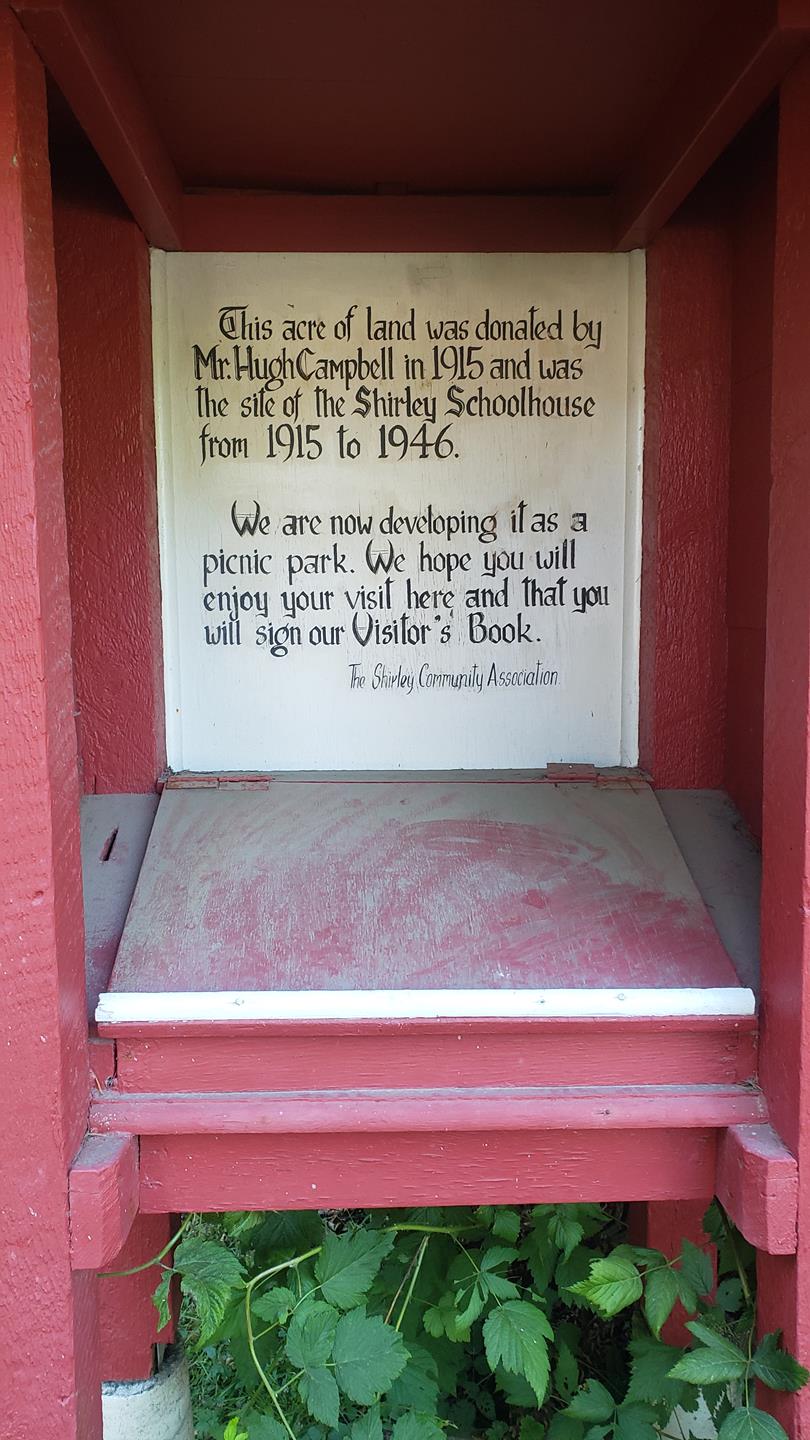 This acre of land was donated by
Mr. Hugh Campbell in 1915 and was
the site of the Shirley Schoolhouse
from 1915 to 1946.
We are now developing it as a
picnic park. We hope you will
enjoy your visit here and that you
will sign our Visitor's Book.
The Shirley Community Association